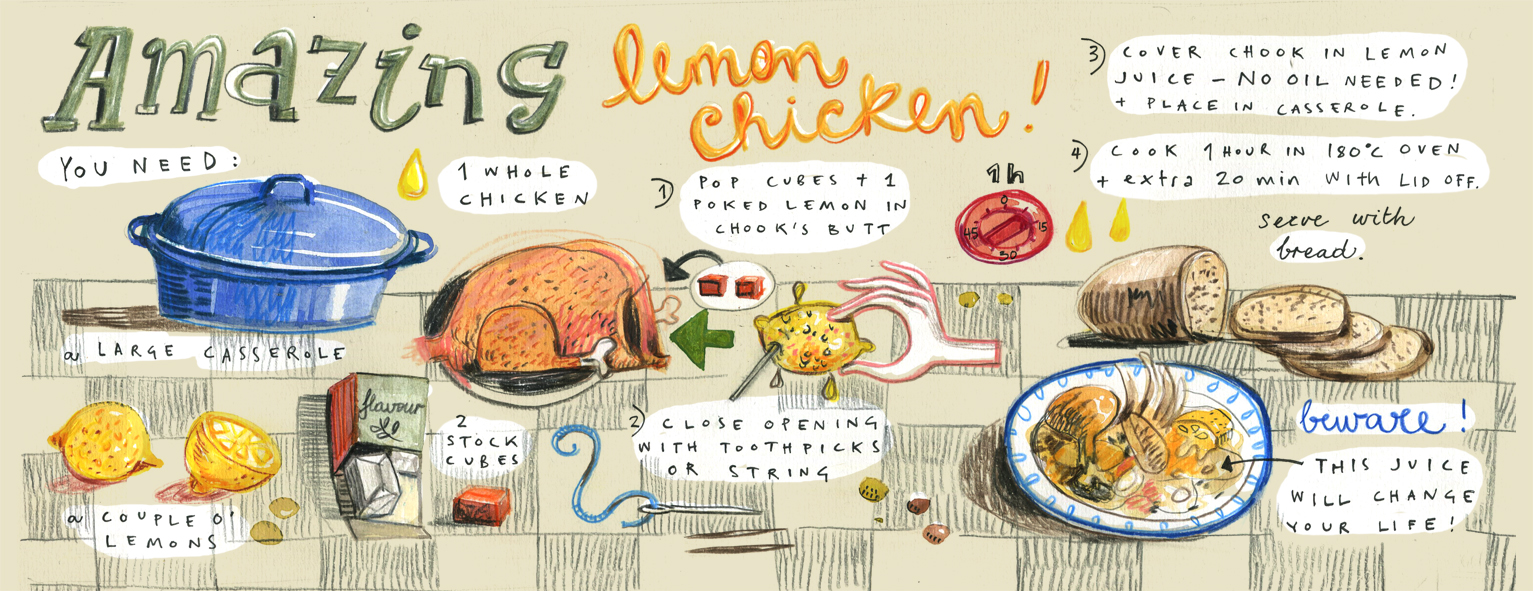 Amazing
lemon
chicken!
YOU NEED:
1 WHOLE
CHICKEN
a LARGE CASSEROLE
a COUPLE O'
LEMONS
flavour
2
STOCK
CUBES
1) POP CUBES + 1
POKED LEMON IN
CHOOK'S BUTT
2) CLOSE OPENING
WITH TOOTHPICKS
OR STRING
3) COVER CHOOK IN LEMON
JUICE - NO OIL NEEDED!
+ PLACE IN CASSEROLE.
4) COOK 1 HOUR IN 180°C OVEN
+ extra 20 min WITH LID OFF.
1h
0
45 15
30
serve with
bread.
beware!
THIS JUICE
WILL CHANGE
YOUR LIFE!